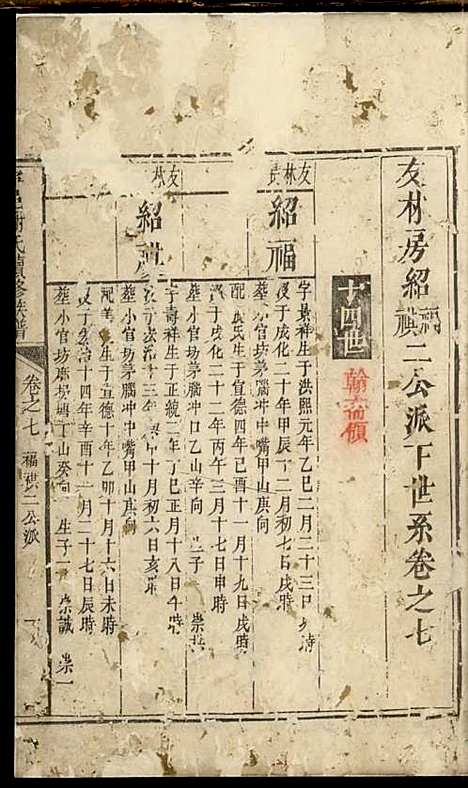 友材房紹福祺二公派下世系卷之七
十四世
友林長
紹福
字景祥生于洪熙元年乙巳二月二十三日 時
歿于成化二十年甲辰十二月初七日戌時
葬小官坊茅腦冲中嘴甲山庚向
配 氏生于宣德四年己酉十一月十九日戌時
歿于成化二十二年丙午三月十七日申時
葬小官坊茅腦冲口乙山辛向 生子 崇
友林
紹祺
字壽祥生于正統二年丁巳正月十八日午時
歿于 十三年 十月初六日亥時
葬小官坊茅腦冲中嘴甲山庚向
配 生于宣德十年乙卯十月十六日未時
歿于弘治十四年辛酉十一月二十七日辰時
葬小官坊 丁山癸向 生子 崇誠 崇
氏續修族譜
卷之七
福祺二公派